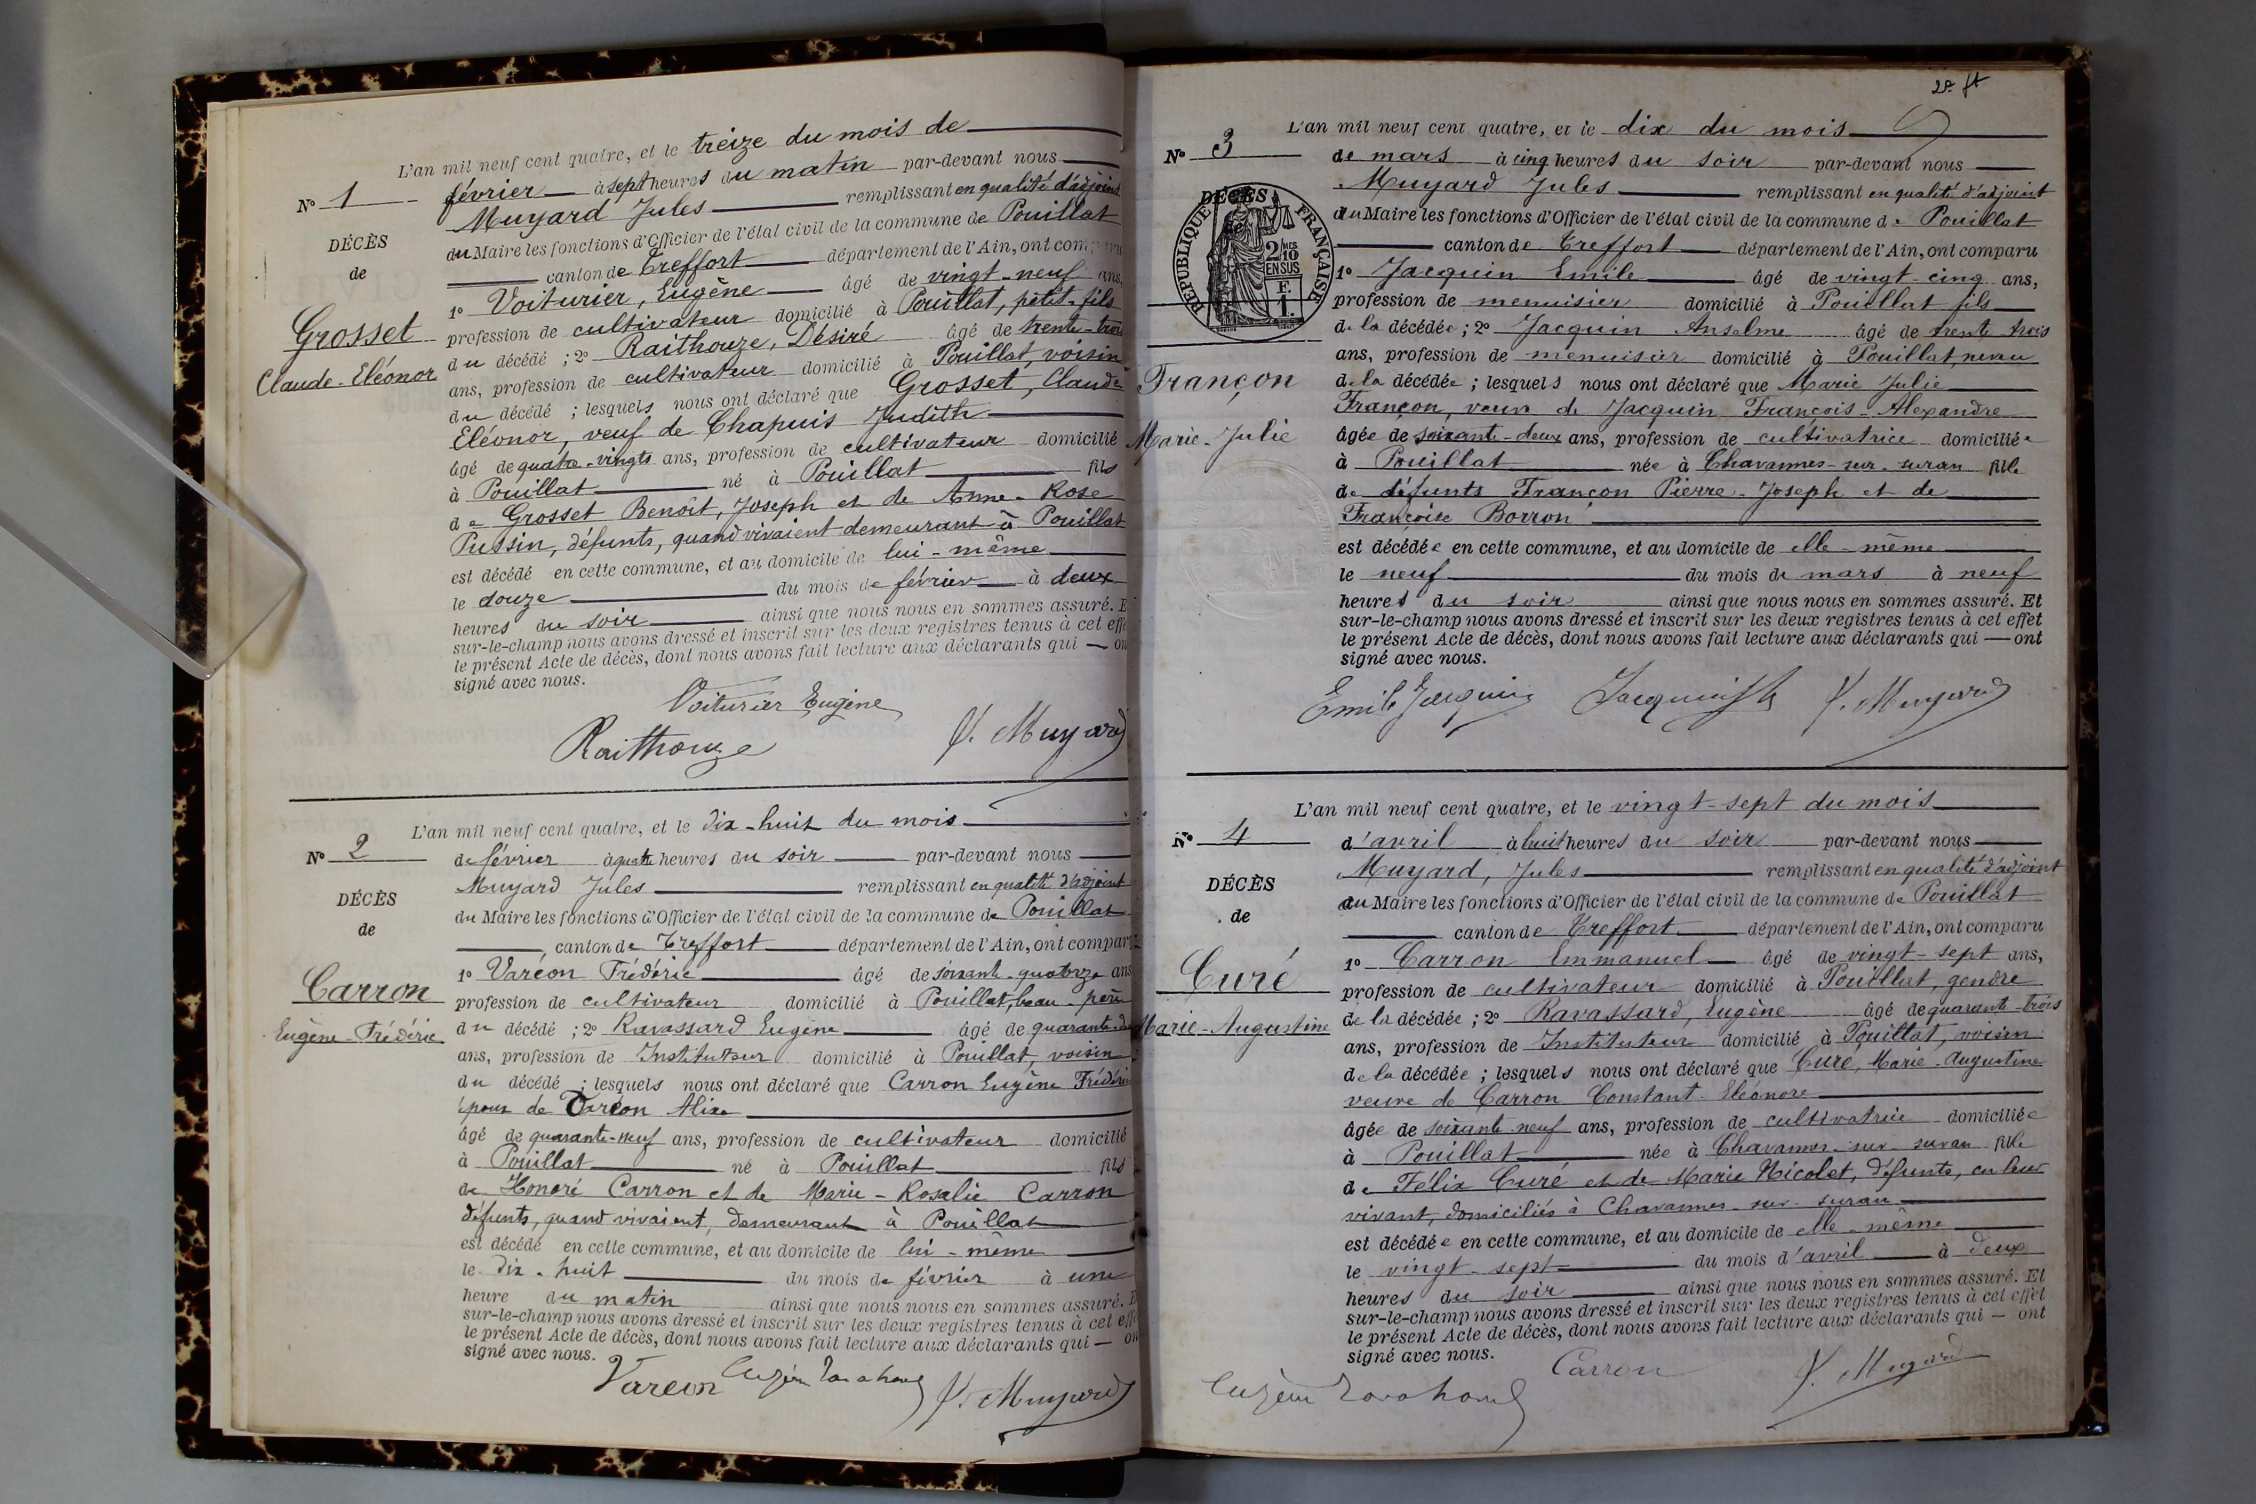 L'an mil neuf cent quatre, et le treize du mois de
N° 1 février à sept heures du matin par-devant nous
Muyard Jules remplissant en qualité d'adjoint
DÉCÈS
du Maire les fonctions d'Officier de l'état civil de la commune de Pouillat
de
canton de Treffort département de l'Ain, ont comparu
1° Voiturier, Eugène âgé de vingt-neuf ans,
Grosset
profession de cultivateur domicilié à Pouillat, petit-fils
du décédé ; 2° Raithouze, Désiré âgé de trente-trois
Claude-Eléonor
ans, profession de cultivateur domicilié à Pouillat, voisin
du décédé ; lesquels nous ont déclaré que Grosset, Claude
Eléonor, veuf de Chapuis Judith
âgé de quatre-vingts ans, profession de cultivateur domicilié
à Pouillat né à Pouillat fils
de Grosset Benoît, Joseph et de Anne-Rose
Pussin, défunts, quand vivaient demeurant à Pouillat
est décédé en cette commune, et au domicile de lui-même
le douze du mois de février à deux
heures du soir ainsi que nous nous en sommes assuré. E
sur-le-champ nous avons dressé et inscrit sur les deux registres tenus à cet effe
le présent Acte de décès, dont nous avons fait lecture aux déclarants qui — on
signé avec nous.
Voiturier Eugène
Raithouze J. Muyard
L'an mil neuf cent quatre, et le dix-huit du mois
N° 2 de février à quatre heures du soir par-devant nous
Muyard Jules remplissant en qualité d'adjoint
DÉCÈS
du Maire les fonctions d'Officier de l'état civil de la commune de Pouillat
de
canton de Treffort département de l'Ain, ont compar
1° Varéon Frédéric âgé de soixante-quatorze ans
Carron
profession de cultivateur domicilié à Pouillat, beau-père
Eugène-Frédéric
du décédé ; 2° Ravassard Eugène âgé de quarante-
ans, profession de Instituteur domicilié à Pouillat, voisin
du décédé ; lesquels nous ont déclaré que Carron Eugène Frédéric
époux de Varéon Alix
âgé de quarante-neuf ans, profession de cultivateur domicilié
à Pouillat né à Pouillat fils
de Honoré Carron et de Marie-Rosalie Carron
défunts, quand vivaient, demeurant à Pouillat
est décédé en cette commune, et au domicile de lui-même
le dix-huit du mois de février à une
heure du matin ainsi que nous nous en sommes assuré. E
sur-le-champ nous avons dressé et inscrit sur les deux registres tenus à cet effe
le présent Acte de décès, dont nous avons fait lecture aux déclarants qui — on
signé avec nous.
Vareon J. Muyard
L'an mil neuf cent quatre, et le dix du mois
N° 3 de mars à cinq heures du soir par-devant nous
Muyard Jules remplissant en qualité d'adjoint
DÉCÈS
RÉPUBLIQUE FRANÇAISE
2/10 EN SUS
F. 1.
du Maire les fonctions d'Officier de l'état civil de la commune de Pouillat
canton de Treffort département de l'Ain, ont comparu
1° Jacquin Emile âgé de vingt-cinq ans,
profession de menuisier domicilié à Pouillat fils
de la décédée ; 2° Jacquin Anselme âgé de trente trois
ans, profession de menuisier domicilié à Pouillat, neveu
Françon
de la décédée ; lesquels nous ont déclaré que Marie Julie
Françon, veuve de Jacquin François-Alexandre
Marie-Julie
âgée de soixante-deux ans, profession de cultivatrice domiciliée
à Pouillat née à Chavannes-sur-suran fille
de défunts Françon Pierre-Joseph et de
Françoise Borron
est décédée en cette commune, et au domicile de elle-même
le neuf du mois de mars à neuf
heures du soir ainsi que nous nous en sommes assuré. Et
sur-le-champ nous avons dressé et inscrit sur les deux registres tenus à cet effet
le présent Acte de décès, dont nous avons fait lecture aux déclarants qui — ont
signé avec nous.
Emile Jacquin J. Muyard
L'an mil neuf cent quatre, et le vingt-sept du mois
N° 4 d'avril à huit heures du soir par-devant nous
Muyard, Jules remplissant en qualité d'adjoint
DÉCÈS
du Maire les fonctions d'Officier de l'état civil de la commune de Pouillat
de
canton de Treffort département de l'Ain, ont comparu
1° Carron Emmanuel âgé de vingt-sept ans,
Curé
profession de cultivateur domicilié à Pouillat, gendre
Marie-Augustine
de la décédée ; 2° Ravassard, Eugène âgé de quarante-trois
ans, profession de Instituteur domicilié à Pouillat, voisin
de la décédée ; lesquels nous ont déclaré que Curé, Marie-Augustine
veuve de Carron Constant-Eléonore
âgée de soixante-neuf ans, profession de cultivatrice domiciliée
à Pouillat née à Chavannes-sur-suran fille
de Félix Curé et de Marie Nicolet, défunts, en leur
vivant, domiciliés à Chavannes-sur-suran
est décédée en cette commune, et au domicile de elle-même
le vingt-sept du mois d'avril à deux
heures du soir ainsi que nous nous en sommes assuré. Et
sur-le-champ nous avons dressé et inscrit sur les deux registres tenus à cet effet
le présent Acte de décès, dont nous avons fait lecture aux déclarants qui — ont
signé avec nous.
Carron J. Muyard